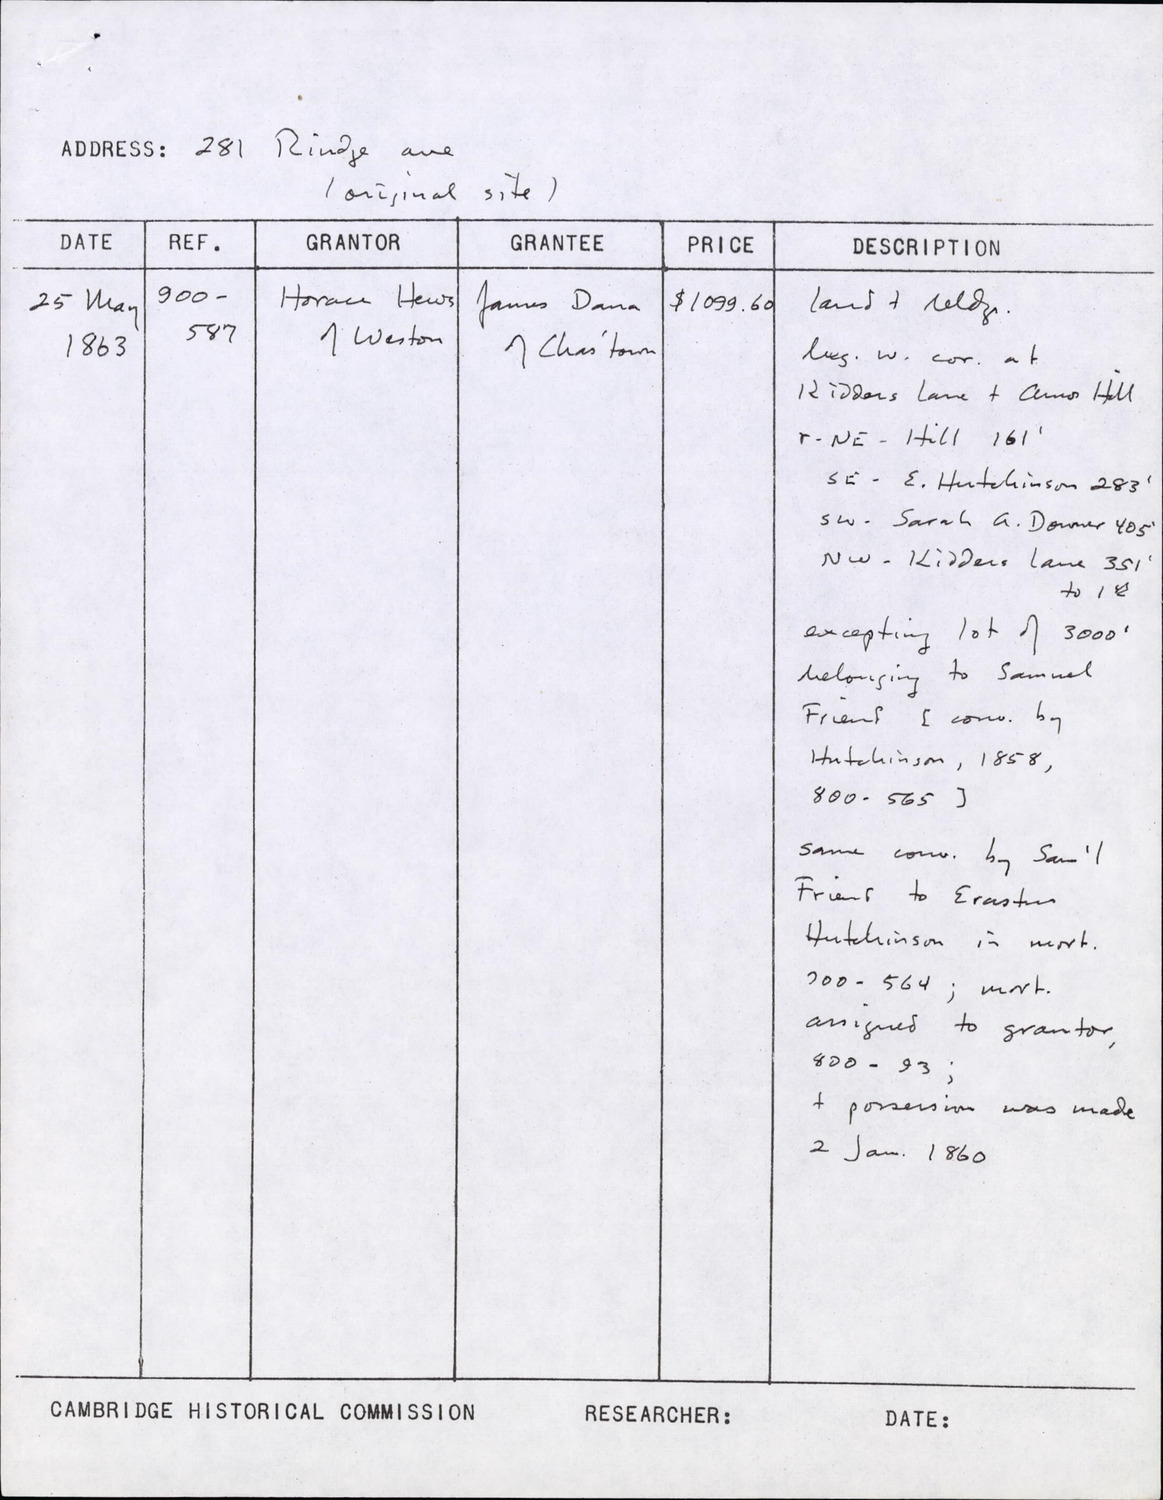 ADDRESS: 281 Rindge ave
(original site)
DATE REF. GRANTOR GRANTEE PRICE DESCRIPTION
25 May 1863
900-587
Horace Hews of Weston
James Dana of Chas'town
$1099.60
land + bldgs.
beg. w. cor. at
Kidders Lane + Amos Hill
r-NE - Hill 161'
SE - E. Hutchinson 283'
SW - Sarah A. Downer 405'
NW - Kidders Lane 351'
to 1st
excepting lot of 3000'
belonging to Samuel
Friend [ conv. by
Hutchinson, 1858,
800-565 ]
same conv. by Sam'l
Friend to Erastus
Hutchinson in mort.
564 ; mort.
assigned to grantor,
800-93 ;
+ possession was made
2 Jan. 1860
CAMBRIDGE HISTORICAL COMMISSION RESEARCHER: DATE: